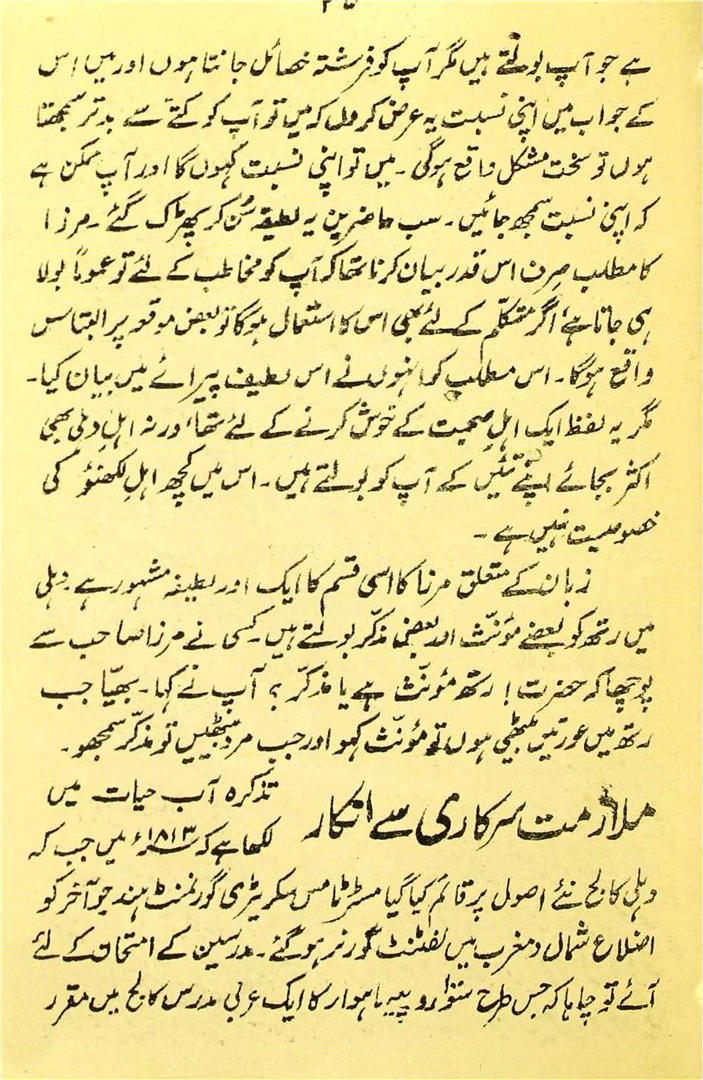 ہے جو آپ بولتے ہیں مگر آپ کو فرشتہ خصائل جانتا ہوں اور میں اس
کے جواب میں اپنی نسبت یہ عرض کروں کہ میں تو آپ کو کتے سے بدتر سمجھتا
ہوں تو سخت مشکل واقع ہوگی ۔ میں تو اپنی نسبت کہوں گا اور آپ ممکن ہے
کہ اپنی نسبت سمجھ جائیں ۔ سب حاضرین یہ لطیفہ سُن کر پھڑک گئے ۔ مرزا
کا مطلب صرف اس قدر بیان کرنا تھا کہ آپ کو مخاطب کے لئے تو عموماً بولا
ہی جاتا ہے، اگر متکلّم کے لئے بھی اس کا استعمال ہوگا تو بعض موقعہ پر التباس
واقع ہوگا ۔ اس مطلب کو انہوں نے اس لطیف پیرائے میں بیان کیا ۔
مگر یہ لفظ ایک اہلِ صحبت کے خوش کرنے کے لئے تھا، ورنہ اہلِ دہلی بھی
اکثر بجائے اپنے تئیں کے آپ کو بولتے ہیں ۔ اس میں کچھ اہلِ لکھنؤ کی
خصوصیت نہیں ہے ۔
زبان کے متعلق مرزا کا اسی قسم کا ایک اور لطیفہ مشہور ہے ۔ دہلی
میں رتھ کو بعضے مؤنّث اور بعضے مذکّر بولتے ہیں ۔ کسی نے مرزا صاحب سے
پوچھا کہ حضرت ! رتھ مؤنّث ہے یا مذکّر ؟ آپ نے کہا ۔ بھیّا جب
رتھ میں عورتیں بیٹھی ہوں تو مؤنّث کہو اور جب مرد بیٹھیں تو مذکّر سمجھو ۔
ملازمت سرکاری سے انکار
تذکرہ آب حیات میں
لکھا ہے کہ ۱۸۱۳ء میں جب کہ
دہلی کالج نئے اصول پر قائم کیا گیا مسٹر ٹامس سکریٹری گورنمنٹ ہند جو آخر کو
اضلاع شمال و مغرب میں لفٹنٹ گورنر ہوگئے ۔ مدرسین کے امتحان کے لئے
آئے تو چاہا کہ جس طرح سَو روپیہ ماہوار کا ایک عربی مدرس کالج میں مقرر